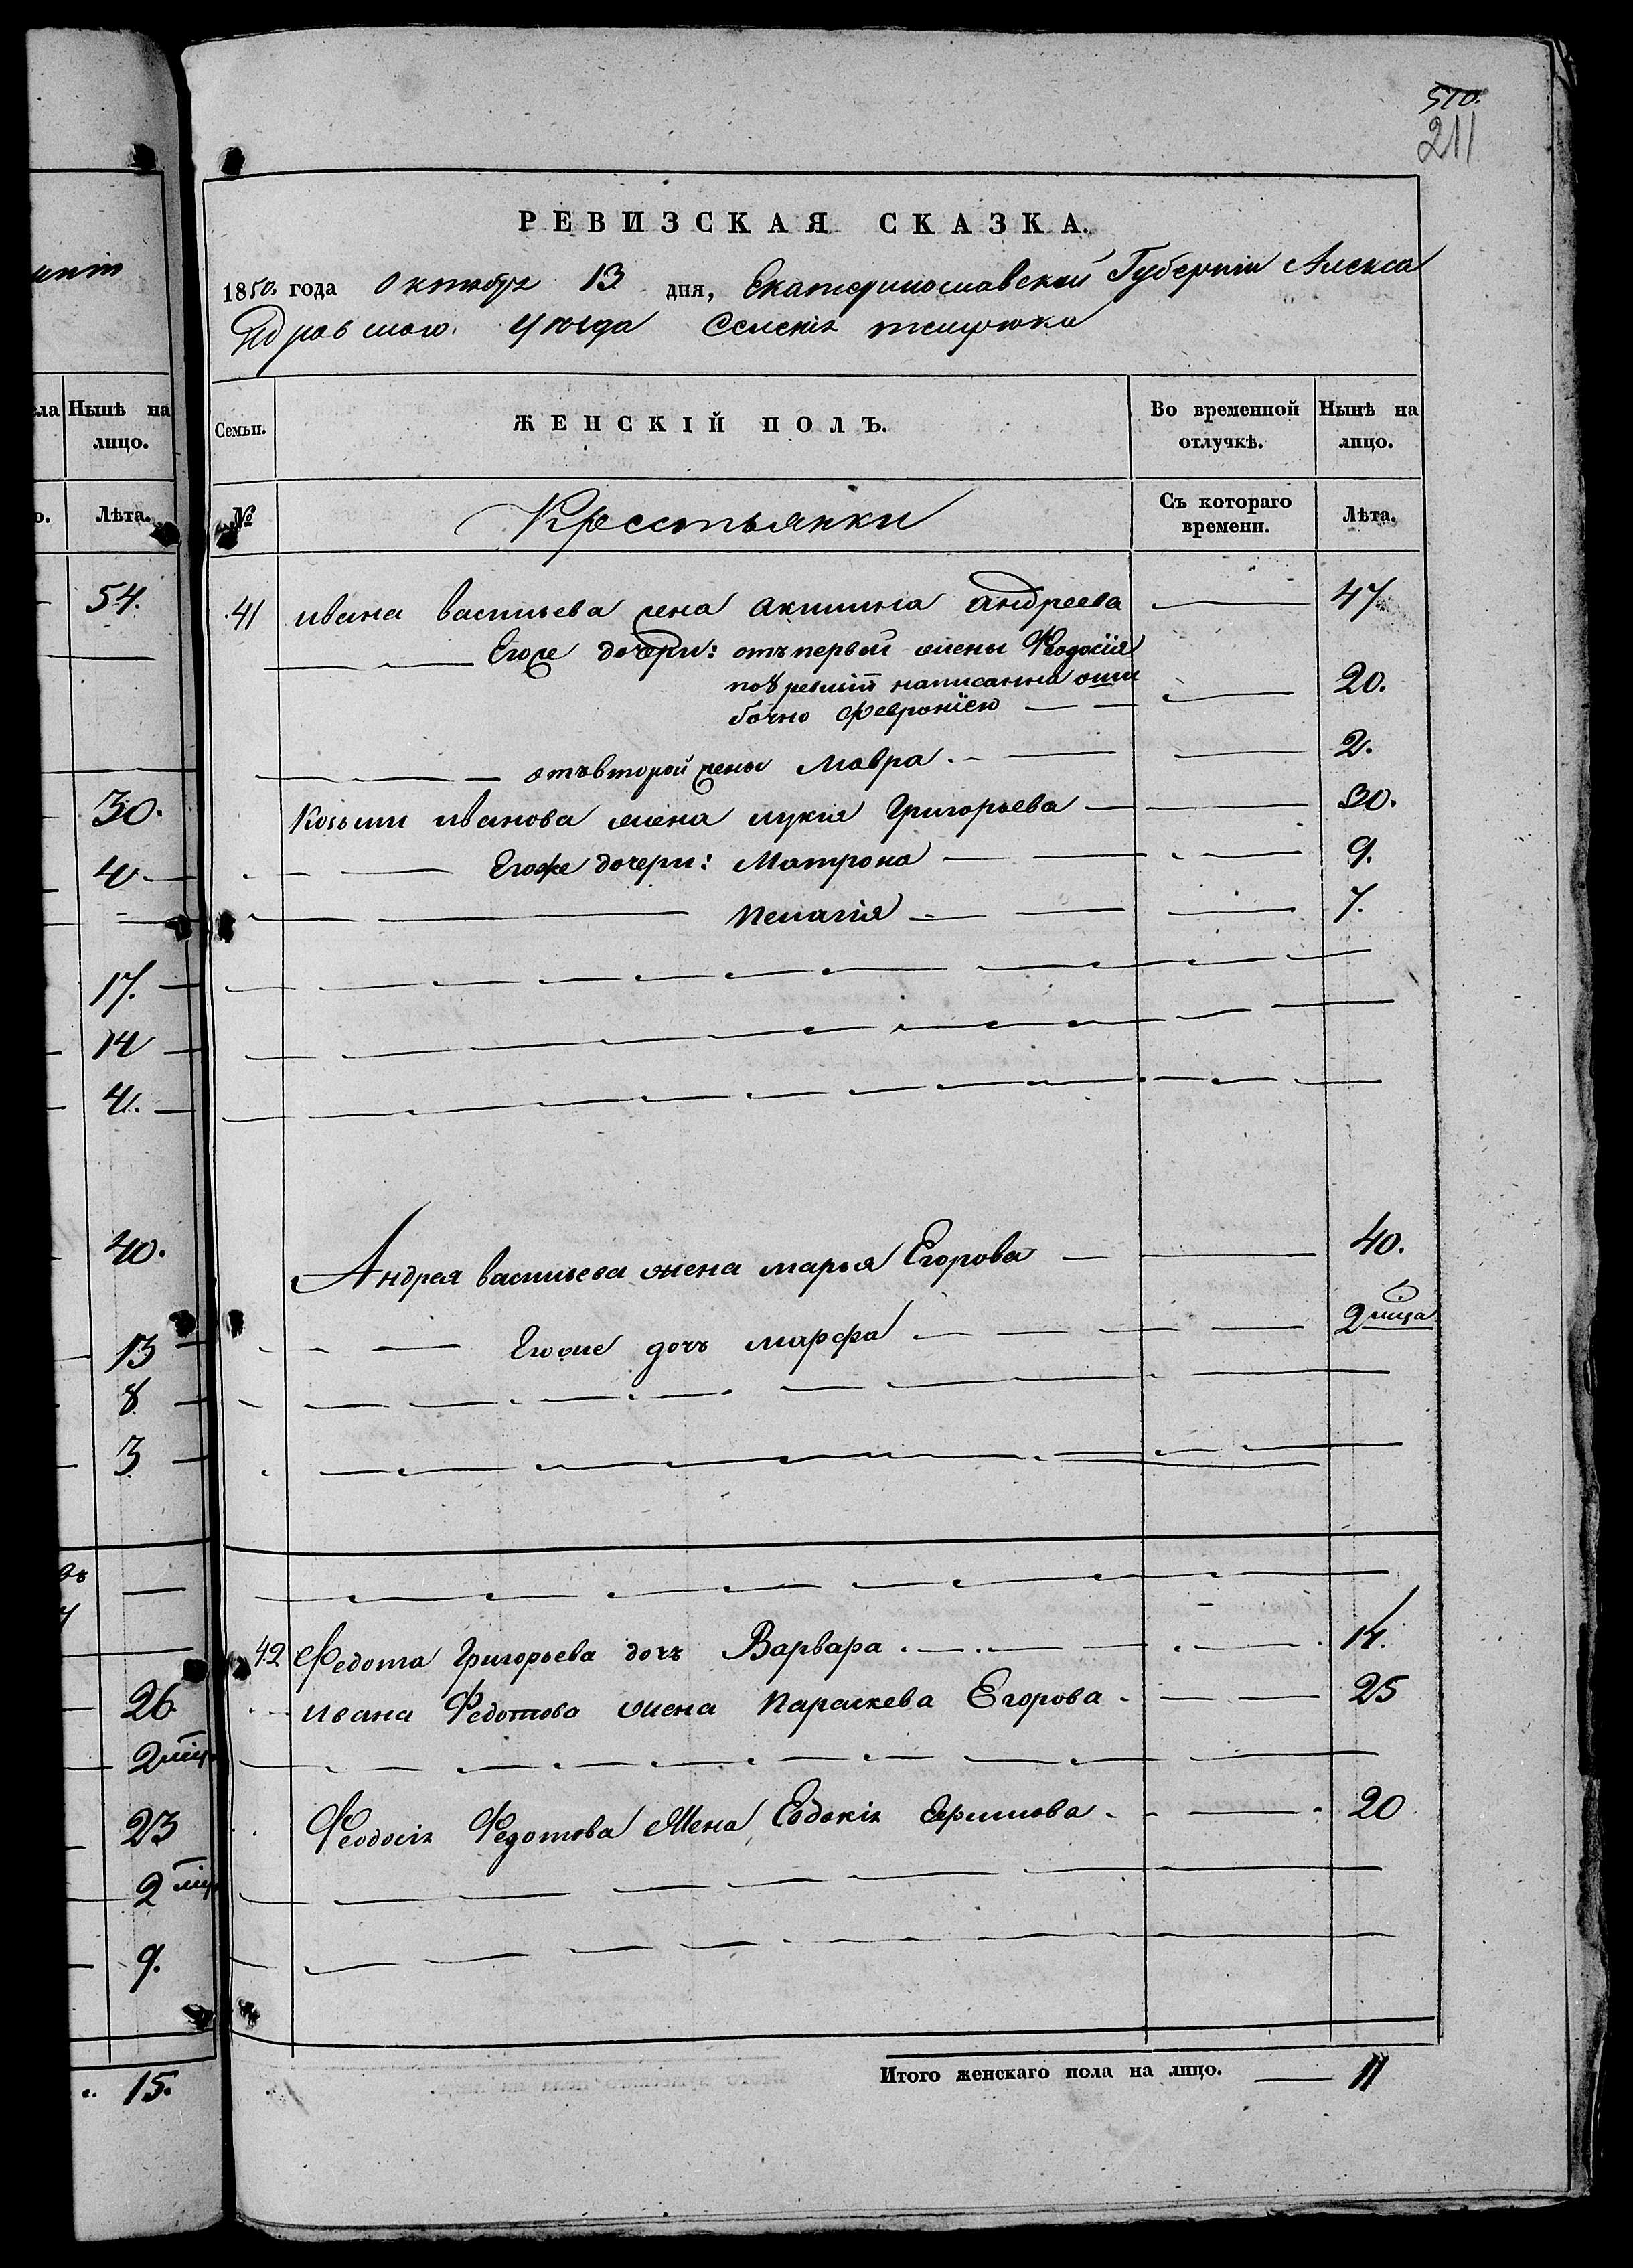 510.
211
РЕВИЗСКАЯ СКАЗКА.
1850. года Октября 13 дня, Екатеринославской Губерніи Алекса
ндровскаго уѣзда Селенія темрюка
ла Нынѣ на лицо.
Лѣта.
54.
30.
4
17.
14
4.
40.
13
8
3
26
2
23
2
9.
15.
Семьи. ЖЕНСКІЙ ПОЛЪ. Во временной отлучкѣ. Нынѣ на лицо.
№ Крестьянки Съ котораго времени. Лѣта.
41 ивана васильева жена акилина андреева 47
Егоже дочери: отъ первой жены Феодосія
по 8 ревизіи написанна оши 20.
бочно Февроніею
отъ второй жены Мавра. 2.
Козьми иванова жена лукія Григорьева 30.
Егоже дочери: Матрона 9.
Пелагія 7.
Андрея васильева жена марья Егорова 40.
Егоже дочь марфа 2 мѣсца
42 Федота Григорьева дочь Варвара 14.
ивана Федотова жена Параскева Егорова 25
Феодосія Федотова Жена Евдокія Ефимова 20
Итого женскаго пола на лицо. 11